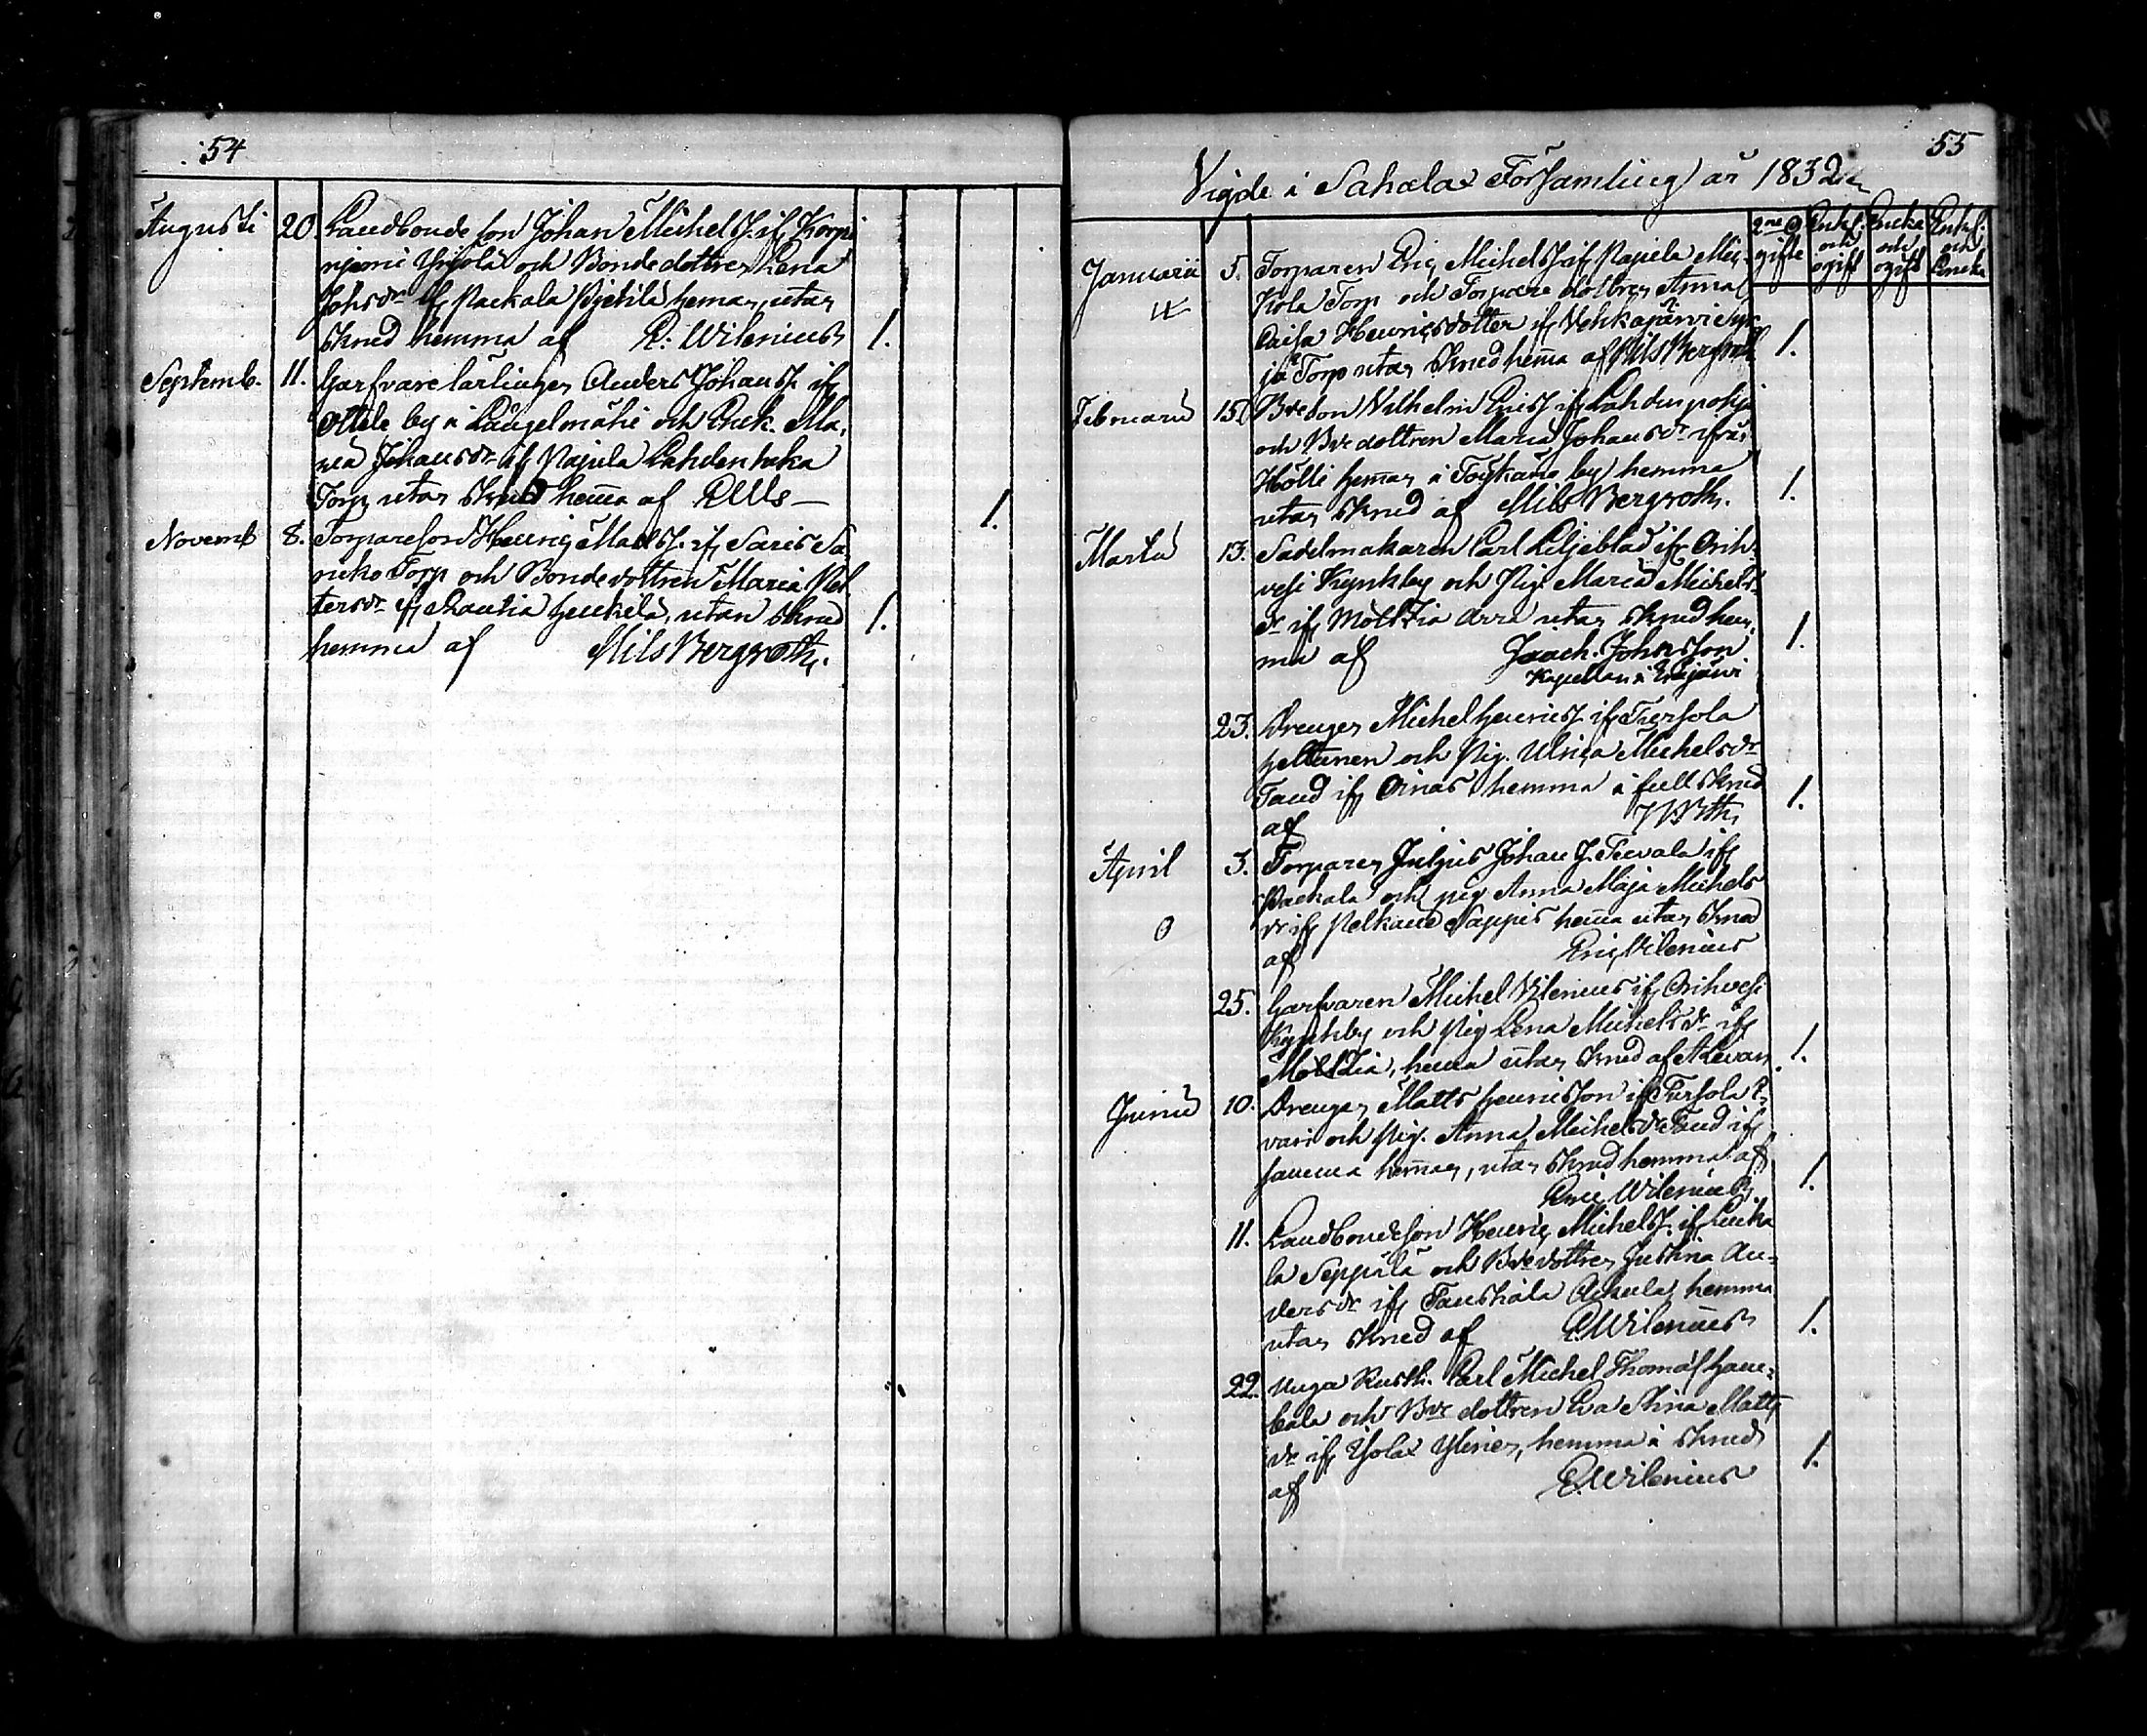 54
Augusti 20. Landbonde son Johan Michelsf. ifr Korpi
njemi Yrjola och Bonde dottren Lena
Johsdr ifr Packala Pjetilä heman, utan
skrud hemma af E. Wilenius 1.
Septemb. 11. Garfvare lärlingen Anders Johansf. ifr
Attila by i Längelmähi och Enk. Ma,
ria Johansdr ifr Pajula Lahdentaka
Torp utan skrud hema af EWls 1.
Novemb 8. Torpareson Henric Matsf. ifr Saris Sa,
neko Torp och Bonde dottren Maria Pet
tersdr ifr Rautia Heickilä, utan skrud 1.
hemma af Nils Bergroth.
55
Vigde i Sahalax Församling år 1832
2ne ogifte
Enkl. och ogift
Encka och ogift
Enkl. och Encka
Januarii 5. Torparen Eric Michelsf af Pajula Mey,
kola Torp och Torpare dottren Anna
Caisa Henricsdotter ifr Vehkajärvi
jä Torp utan skrud hema af Nils Bergroth 1.
Februarii 15. Bde son Vilhelm Ericsf ifr Lahdenpohja
och Bde dottren Maria Johansdr ifrån
Hölli heman i Toykana by hemma
utan skrud af Nils Bergroth. 1.
Martii 13. Sadelmakaren Carl Liljeblad ifr Orih,
vesi Kynkby och Pig. Maria Michels
dr ifr Moltzia arra utan skrud hem,
ma af Joach. Johnsson 1.
Kapellan i Eräjärvi
23. Drengen Michel Henricsf. ifr Tursola
Heltunen och Pig. Ulrica Michelsdr
Tand ifr Oinas hemma i full skrud 1.
af
April 3. Torparen Juljus Johan J. Teevala ifr
Packala och pig Anna Maja Michels
dr ifr Pelkäne Sappis hema utan skrud
af Eric Wilenius
0
25. Garfvaren Michel Vilenius ifr Orihvesi
Kynkby och Pig Lena Michelsdr ifr
Moltzia, hema utan skrud af 1.
Junii 10. Drengen Matts Henricsson ifr Tursola P,
vari och Pig. Anna Michelsdr Tand ifr
samma heman, utan skrud hemma af
Eric Wilenius 1.
11. Landbondeson Henric Michelsf. ifr Lucka
la Seppälä och Bde dottren Justina An,
dersdr ifr Taustiala Ackula, hemma
utan skrud af E. Wilenius 1.
22. Unga Rusth. Carl Michel Thomasf Hau,
bala och Bde dottren Eva Stina Matts
dr ifr Isola Ylinen, hemma i skrud 1.
af E. Wilenius